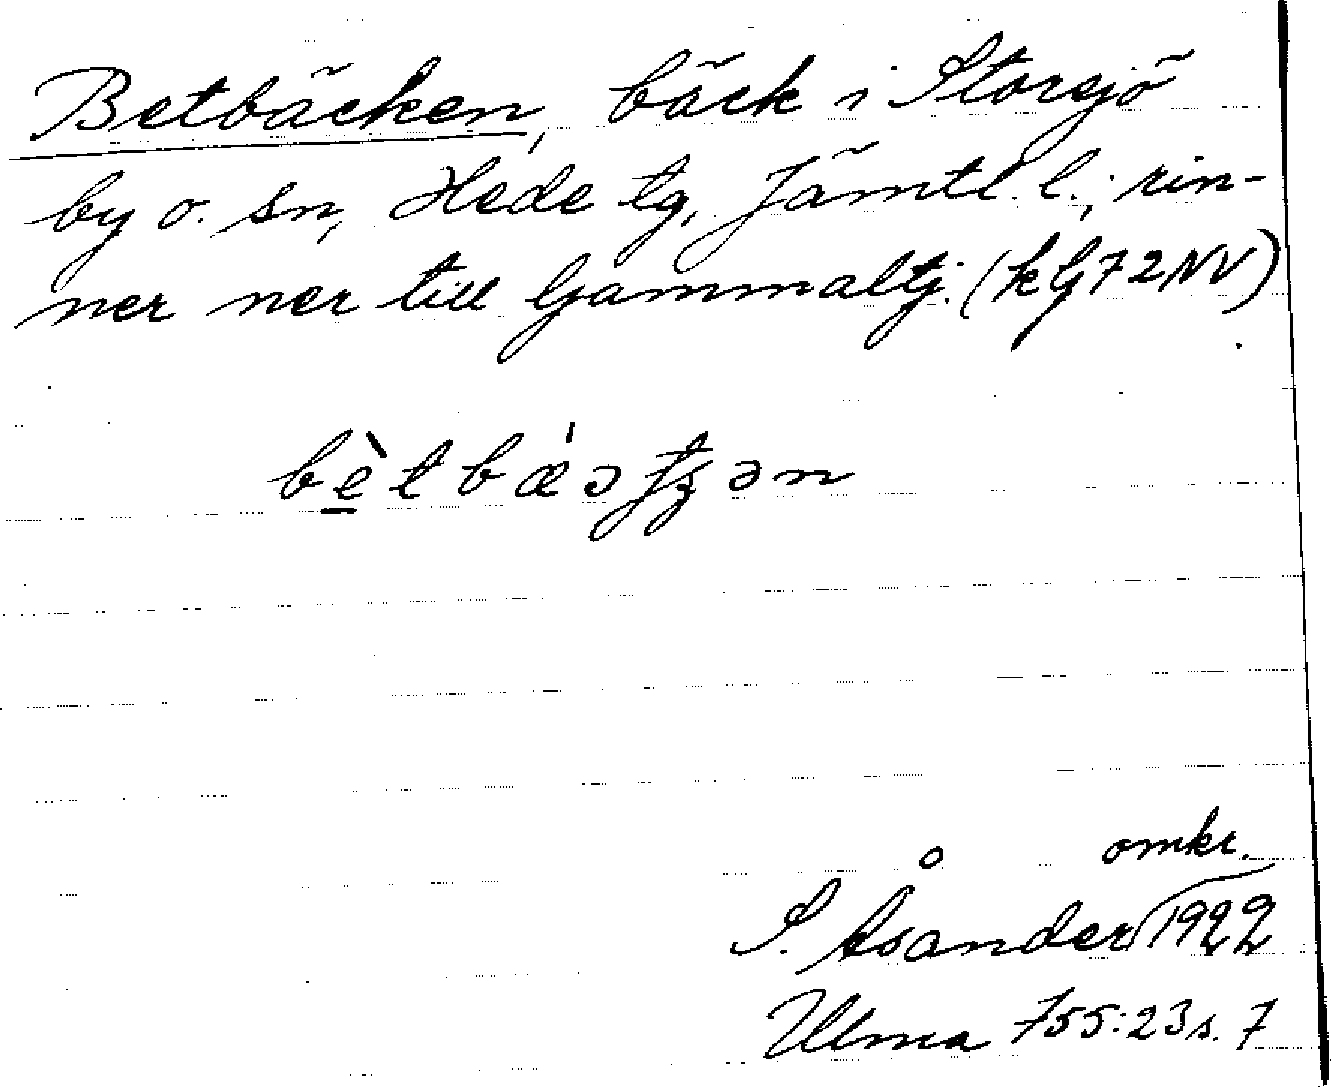 Betbäcken, bäck i Storsjö
by o. sn, Hede tg, Jämtl. l.; rin-
ner ner till Gammaltj. (k G 72 NV)
bè̱tbǽɔʈʐən
omkr.
S. Åsander 1922
Ulma 755:23 s. 7